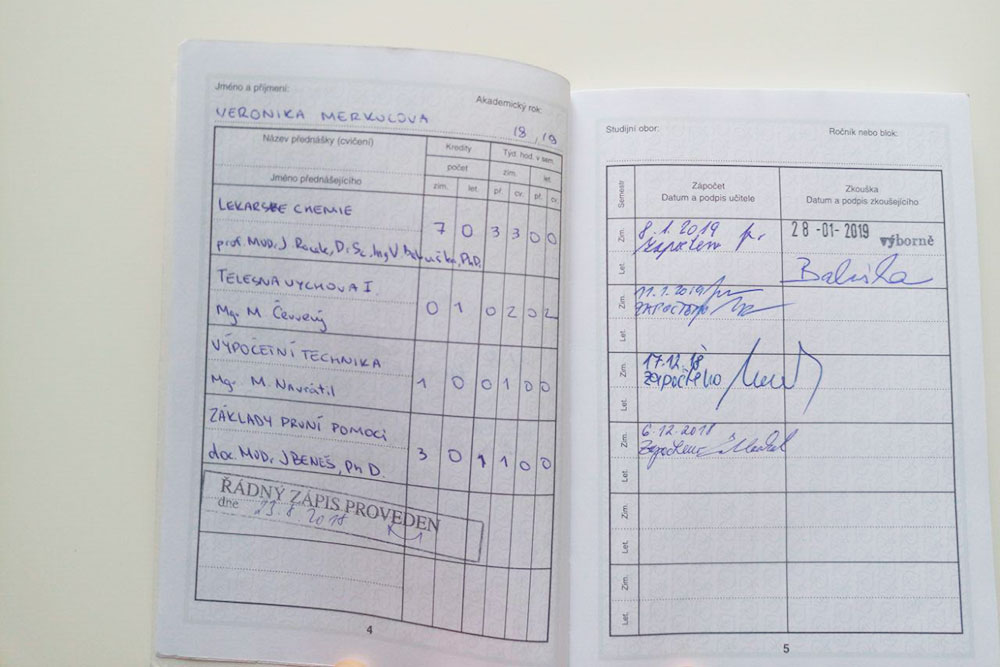 Jméno a příjmení:
Akademický rok:
VERONIKA MERKULOVA 18, 19
Název přednášky (cvičení)
Jméno přednášejícího
Kredity
počet
zim. let.
Týd. hod. v sem.
zim. let.
př. cv. př. cv.
LEKARSKE CHEMIE
7 0 3 3 0 0
prof. MUD. J. D.Sc, Ing V. PhD.
TELESNA VYCHOVA I.
0 1 0 2 0 2
Mgr M. Červený
VÝPOČETNÍ TECHNIKA
Mgr. M. Navrátil
1 0 0 1 0 0
ZÁKLADY PRVNÍ POMOCI
doc. MUDr. J BENEŠ, Ph D.
3 0 1 1 0 0
ŘÁDNÝ ZÁPIS PROVEDEN
dne 23.8.2018
4
Studijní obor:
Ročník nebo blok:
Semestr
Zápočet
Datum a podpis učitele
Zkouška
Datum a podpis zkoušejícího
Zim.
8.1.2019
započten
28 -01- 2019
výborně
Let.
Zim.
11.1.2019
Let.
Zim.
17.12.18
započteno
Let.
Zim.
6.12.2018
Započteno
Let.
Zim.
Let.
Zim.
Let.
5